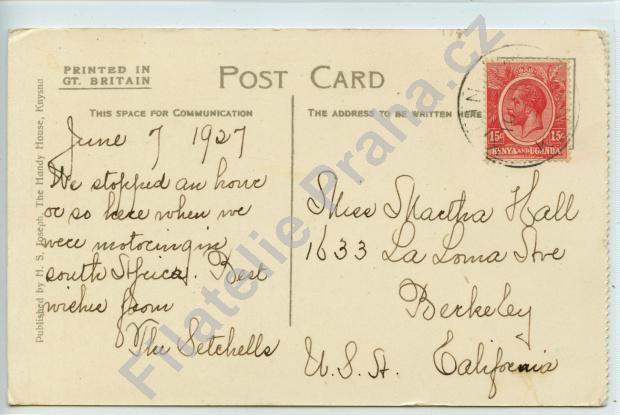 PRINTED IN
GT. BRITAIN
POST CARD
THIS SPACE FOR COMMUNICATION
THE ADDRESS TO BE WRITTEN HERE
June 7 1927
We stopped an hour
or so here when we
were motoring in
south Africa. Best
wishes from
The Setchells
Miss Martha Hall
1633 La Loma Ave
Berkeley
U.S.A. California
15c 15c
KENYA AND UGANDA
Published by H. S. Joseph, The Handy House, Knysna
Filatelie Praha.cz